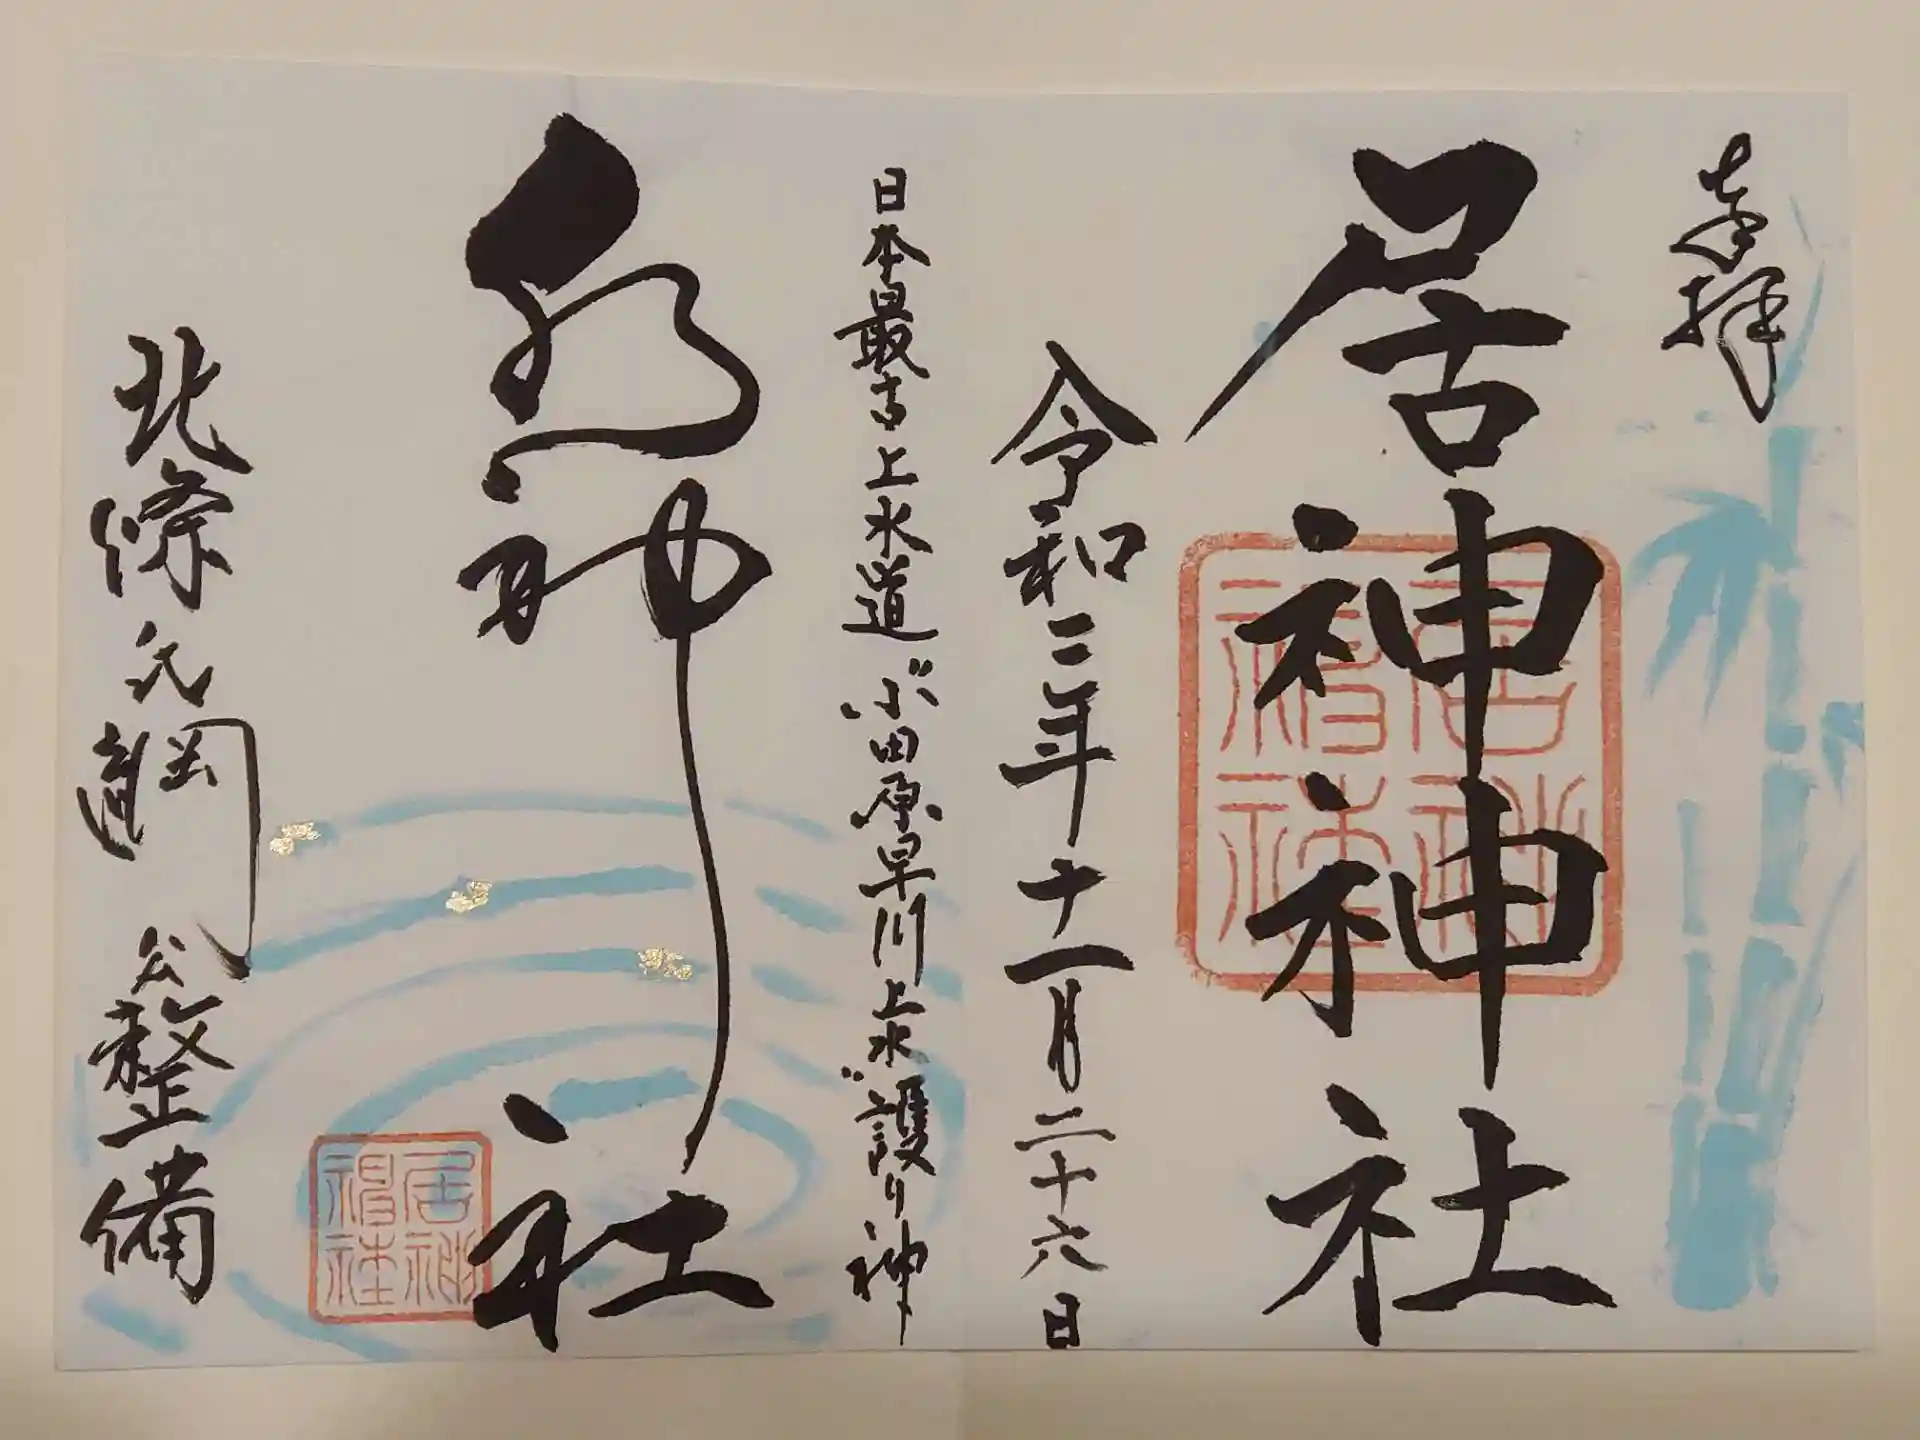 奉拝
居神神社
令和三年十一月二十六日
日本最古上水道〝小田原早川上水〟護り神
水神社
北條氏綱公整備
居神
神社
居神
神社